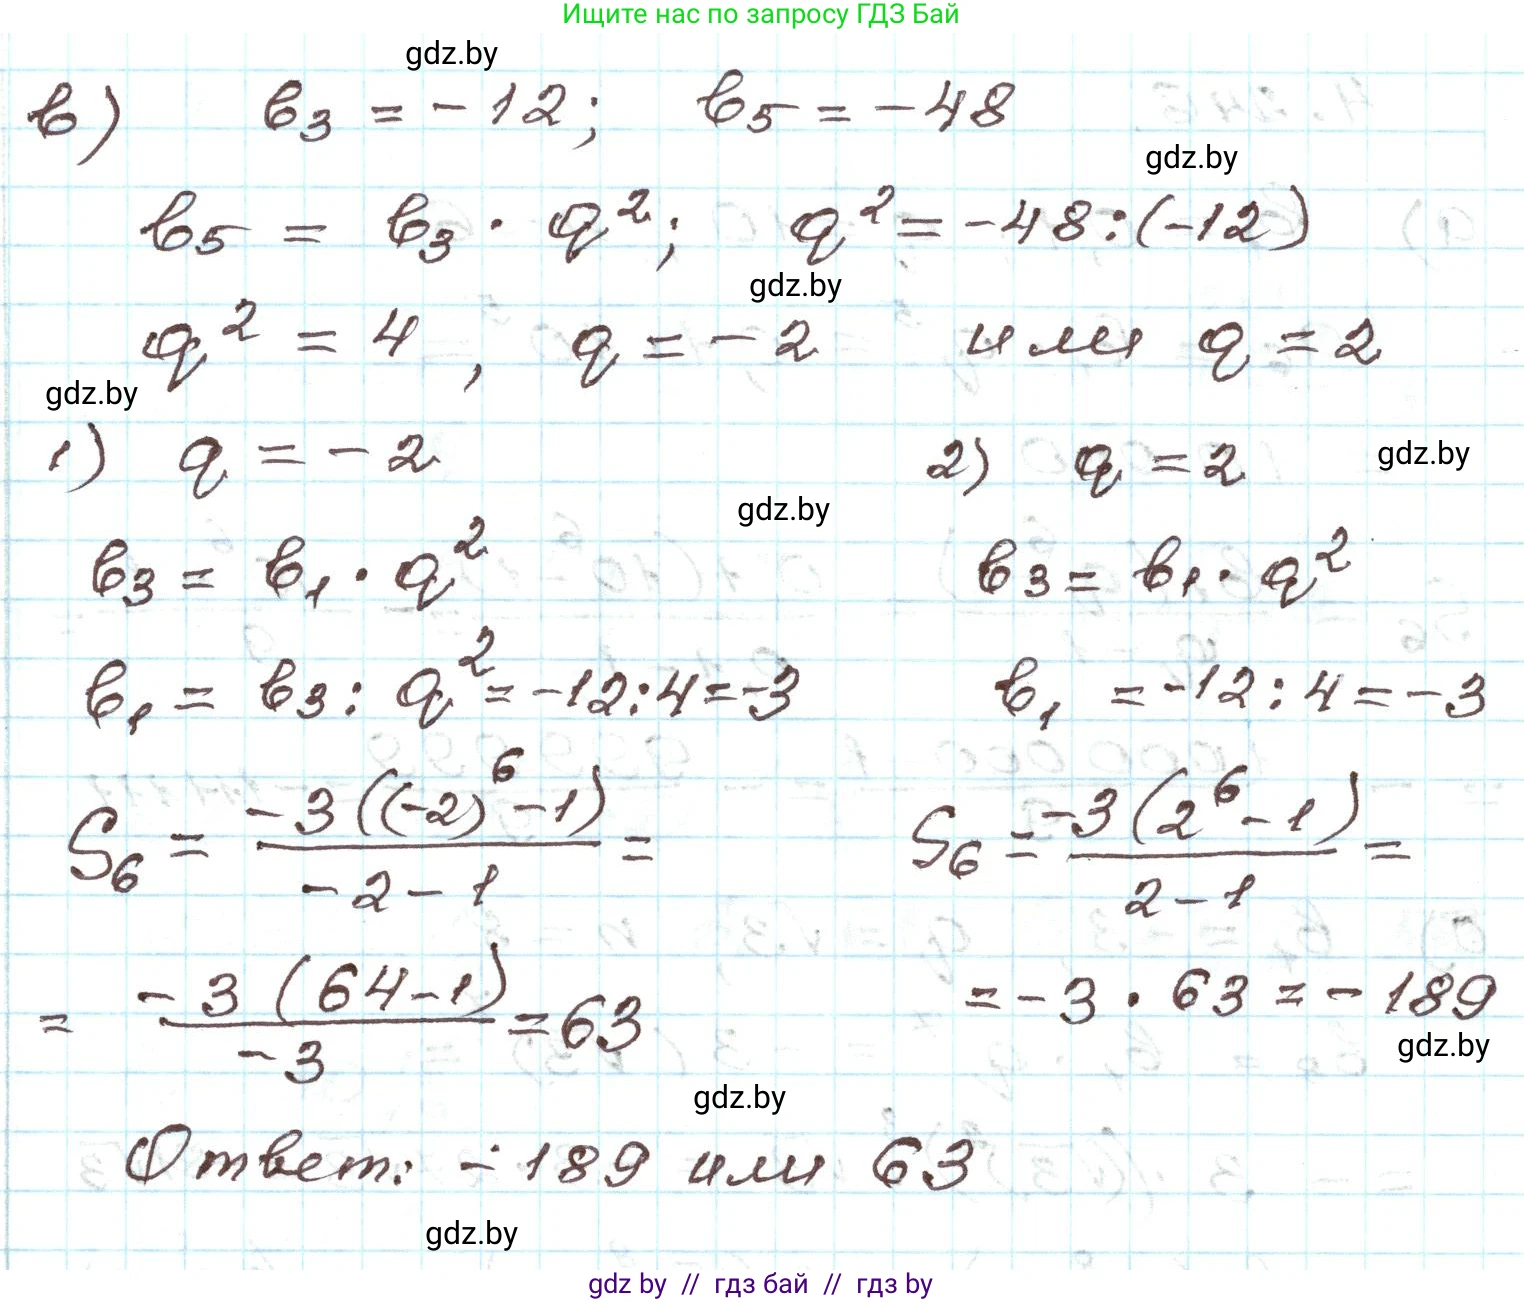 Ищите нас по запросу ГДЗ Бай
gdz.by
в) b₃ = -12; b₅ = -48
gdz.by
b₅ = b₃ · q²; q² = -48 : (-12)
gdz.by
q² = 4, q = -2 или q = 2
gdz.by
1) q = -2 2) q = 2
gdz.by
gdz.by
b₃ = b₁ · q² b₃ = b₁ · q²
b₁ = b₃ : q² = -12 : 4 = -3 b₁ = -12 : 4 = -3
S₆ = (-3((-2)⁶ - 1))/(-2 - 1) = S₆ = (-3(2⁶ - 1))/(2 - 1) =
= (-3(64 - 1))/(-3) = 63 = -3 · 63 = -189
gdz.by
gdz.by
Ответ: -189 или 63
gdz.by
gdz by // гдз бай // гдз by